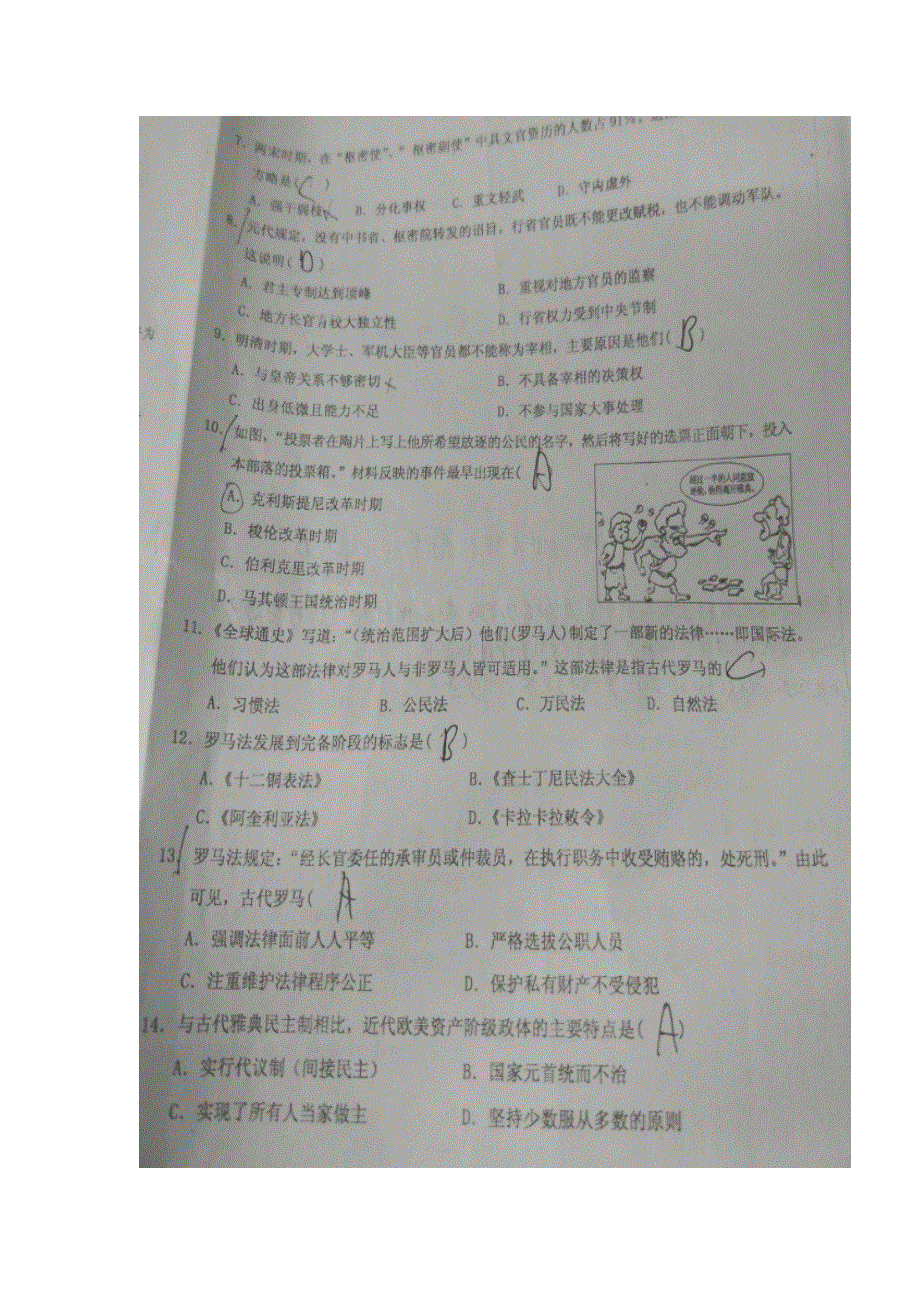 7. 两宋时期，在“枢密使”、“枢密副使”中具文官资历的人数占91%，
方略是( C )
A. 强干弱枝 B. 分化事权 C. 重文轻武 D. 守内虚外
8. 元代规定，没有中书省、枢密院转发的诏旨，行省官员既不能更改赋税，也不能调动军队。
这说明( D )
A. 君主专制达到顶峰 B. 重视对地方官员的监察
C. 地方长官有较大独立性 D. 行省权力受到中央节制
9. 明清时期，大学士、军机大臣等官员都不能称为宰相，主要原因是他们( B )
A. 与皇帝关系不够密切 B. 不具备宰相的决策权
C. 出身低微且能力不足 D. 不参与国家大事处理
10. 如图，“投票者在陶片上写上他所希望放逐的公民的名字，然后将写好的选票正面朝下，投入
本部落的投票箱。”材料反映的事件最早出现在( A
超过一半的人同意放
逐他，他得离开雅典。
A. 克利斯提尼改革时期
B. 梭伦改革时期
C. 伯利克里改革时期
D. 马其顿王国统治时期
11. 《全球通史》写道：“（统治范围扩大后）他们(罗马人)制定了一部新的法律……即国际法。
他们认为这部法律对罗马人与非罗马人皆可适用。”这部法律是指古代罗马的( C )
A. 习惯法 B. 公民法 C. 万民法 D. 自然法
12. 罗马法发展到完备阶段的标志是( B )
A.《十二铜表法》 B.《查士丁尼民法大全》
C.《阿奎利亚法》 D.《卡拉卡拉敕令》
13. 罗马法规定：“经长官委任的承审员或仲裁员，在执行职务中收受贿赂的，处死刑。”由此
可见，古代罗马( A
A. 强调法律面前人人平等 B. 严格选拔公职人员
C. 注重维护法律程序公正 D. 保护私有财产不受侵犯
14. 与古代雅典民主制相比，近代欧美资产阶级政体的主要特点是( A )
A. 实行代议制（间接民主） B. 国家元首统而不治
C. 实现了所有人当家做主 D. 坚持少数服从多数的原则